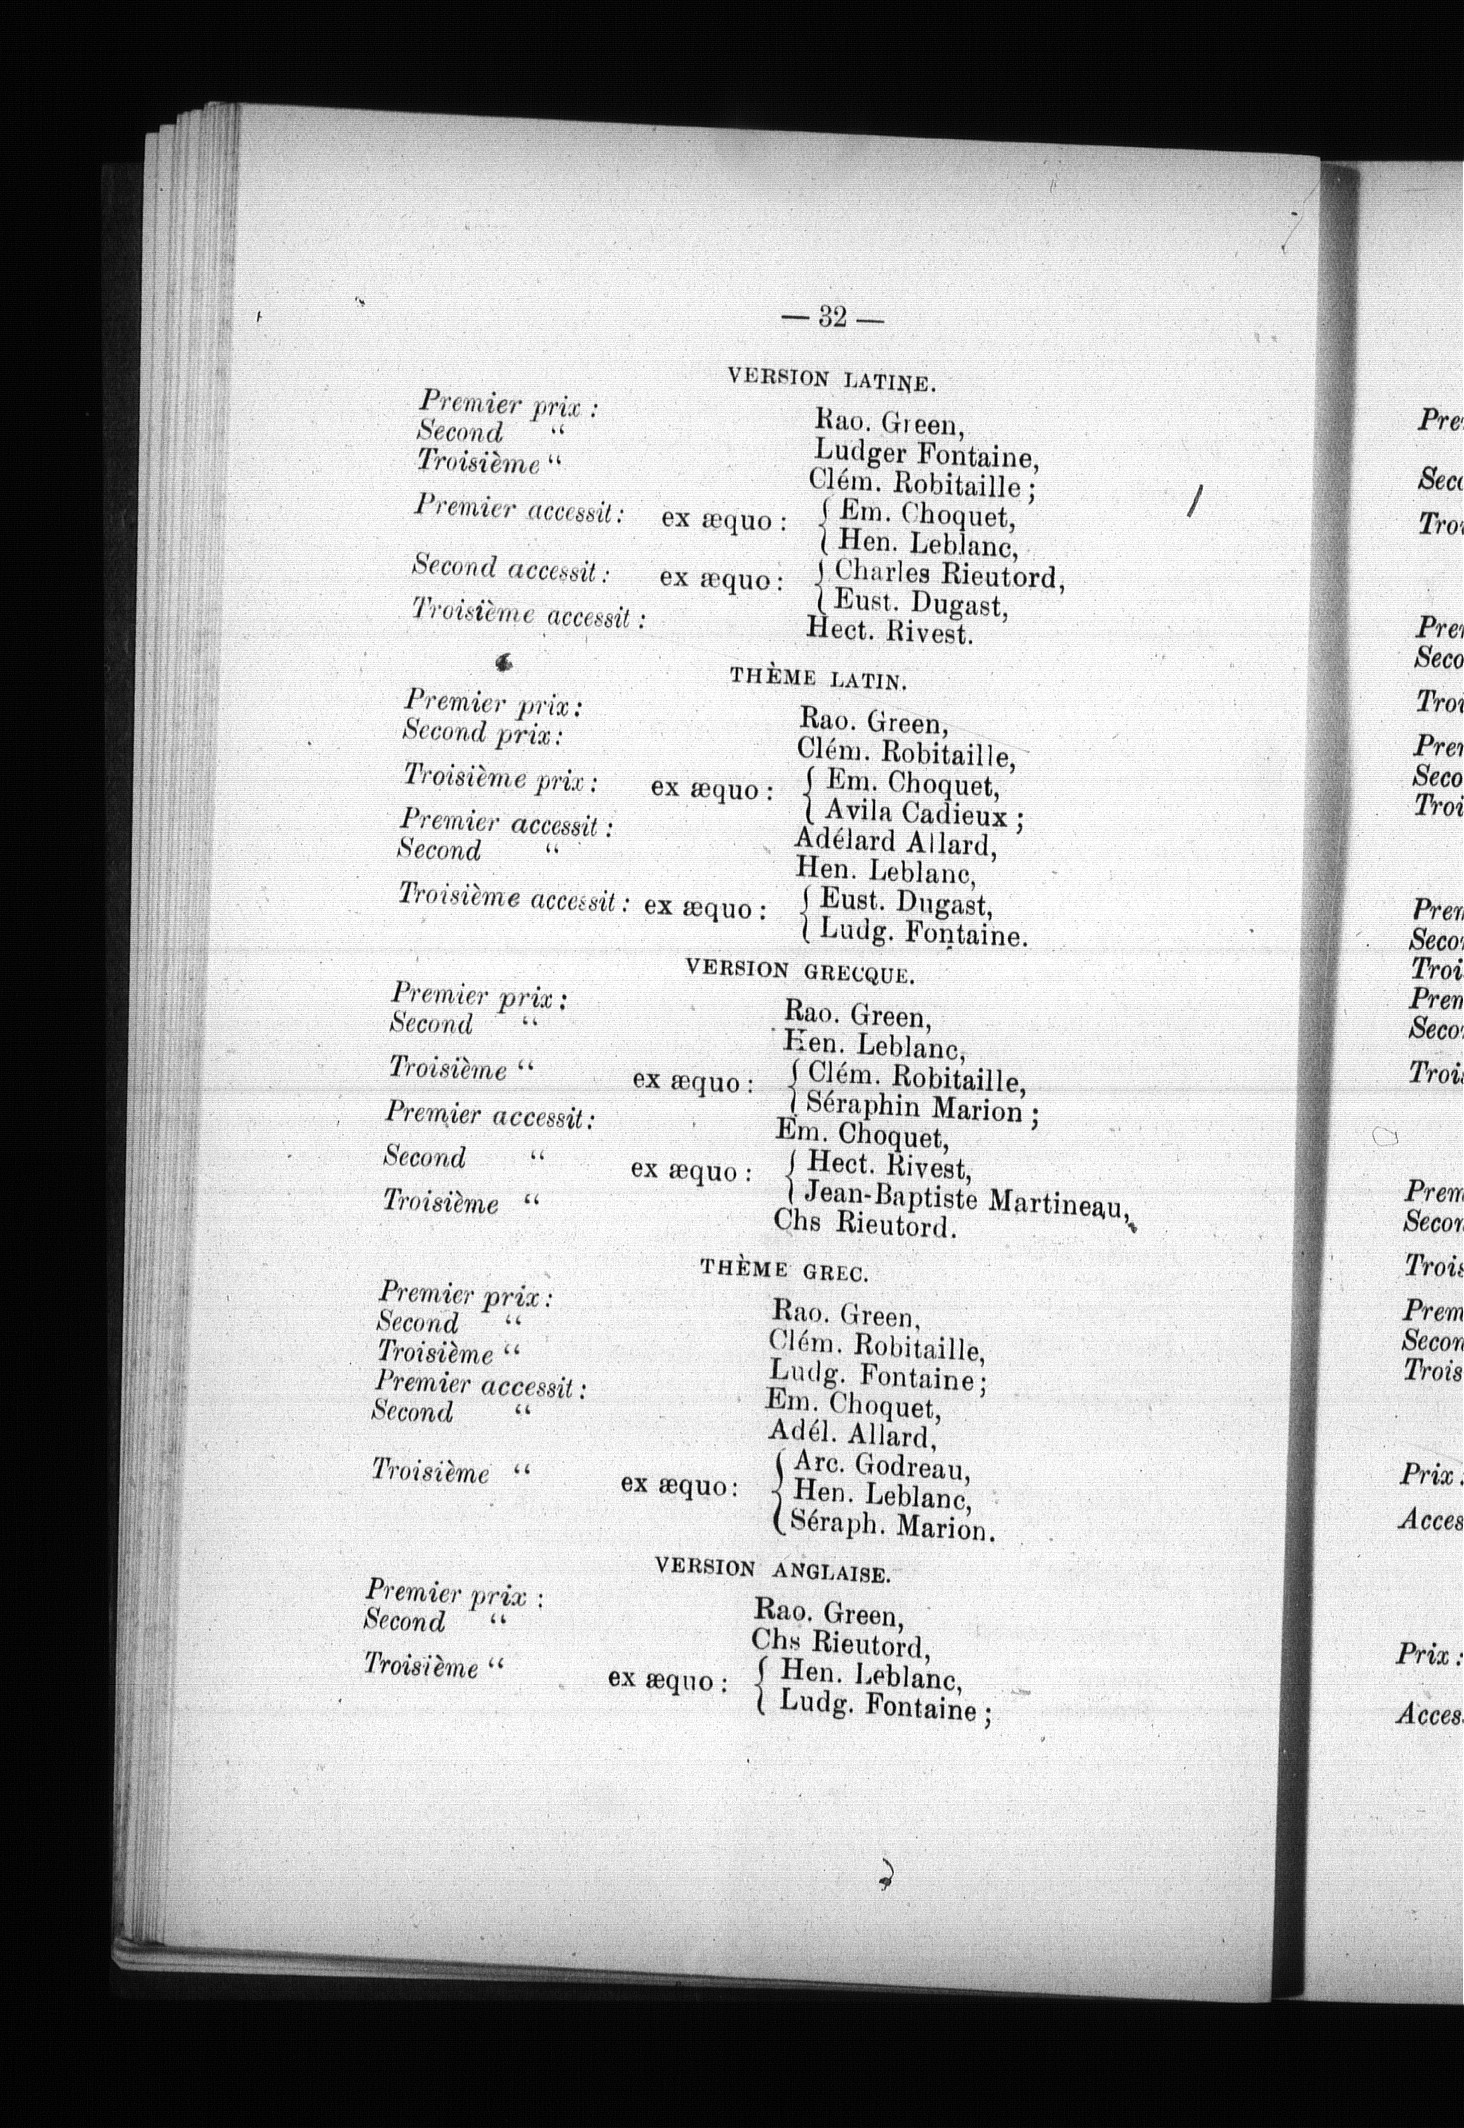 — 32 —
VERSION LATINE.
Premier prix : Rao. Green,
Second “ Ludger Fontaine,
Troisième “ Clém. Robitaille ;
Premier accessit : ex æquo : { Em. Choquet,
{ Hen. Leblanc,
Second accessit : ex æquo : { Charles Rieutord,
{ Eust. Dugast,
Troisième accessit : Hect. Rivest.
THÈME LATIN.
Premier prix : Rao. Green,
Second prix : Clém. Robitaille,
Troisième prix : ex æquo : { Em. Choquet,
{ Avila Cadieux ;
Premier accessit : Adélard Allard,
Second “ Hen. Leblanc,
Troisième accessit : ex æquo : { Eust. Dugast,
{ Ludg. Fontaine.
VERSION GRECQUE.
Premier prix : Rao. Green,
Second “ Hen. Leblanc,
Troisième “ ex æquo : { Clém. Robitaille,
{ Séraphin Marion ;
Premier accessit : Em. Choquet,
Second “ ex æquo : { Hect. Rivest,
{ Jean-Baptiste Martineau,
Troisième “ Chs Rieutord.
THÈME GREC.
Premier prix : Rao. Green,
Second “ Clém. Robitaille,
Troisième “ Ludg. Fontaine ;
Premier accessit : Em. Choquet,
Second “ Adél. Allard,
Troisième “ ex æquo : { Arc. Godreau,
{ Hen. Leblanc,
{ Séraph. Marion.
VERSION ANGLAISE.
Premier prix : Rao. Green,
Second “ Chs Rieutord,
Troisième “ ex æquo : { Hen. Leblanc,
{ Ludg. Fontaine ;
Prix :
Prix :